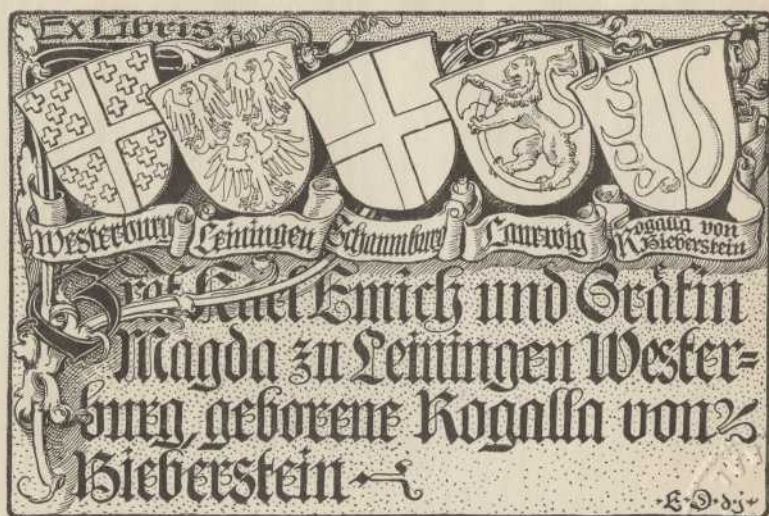 Ex Libris
Westerburg
Leiningen
Schaumburg
Laurwig
Rogalla von
Bieberstein
Graf Karl Emich und Gräfin
Magda zu Leiningen Wester=
burg, geborene Rogalla von
Bieberstein
E·D·d·j